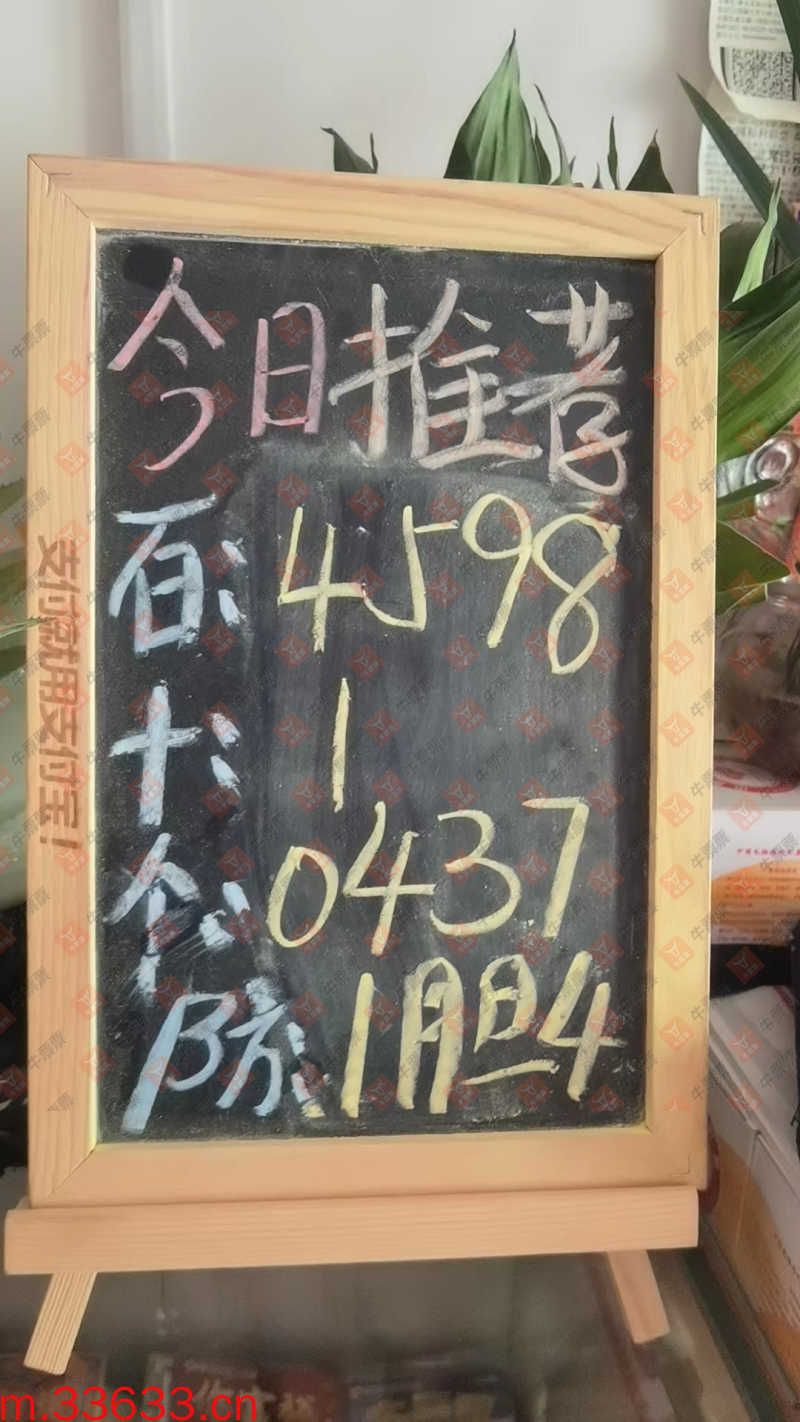 今日推荐
百: 4598
十: 1
个: 0437
防: 1胆4
支付就用支付宝!
牛票票
m.33633.cn